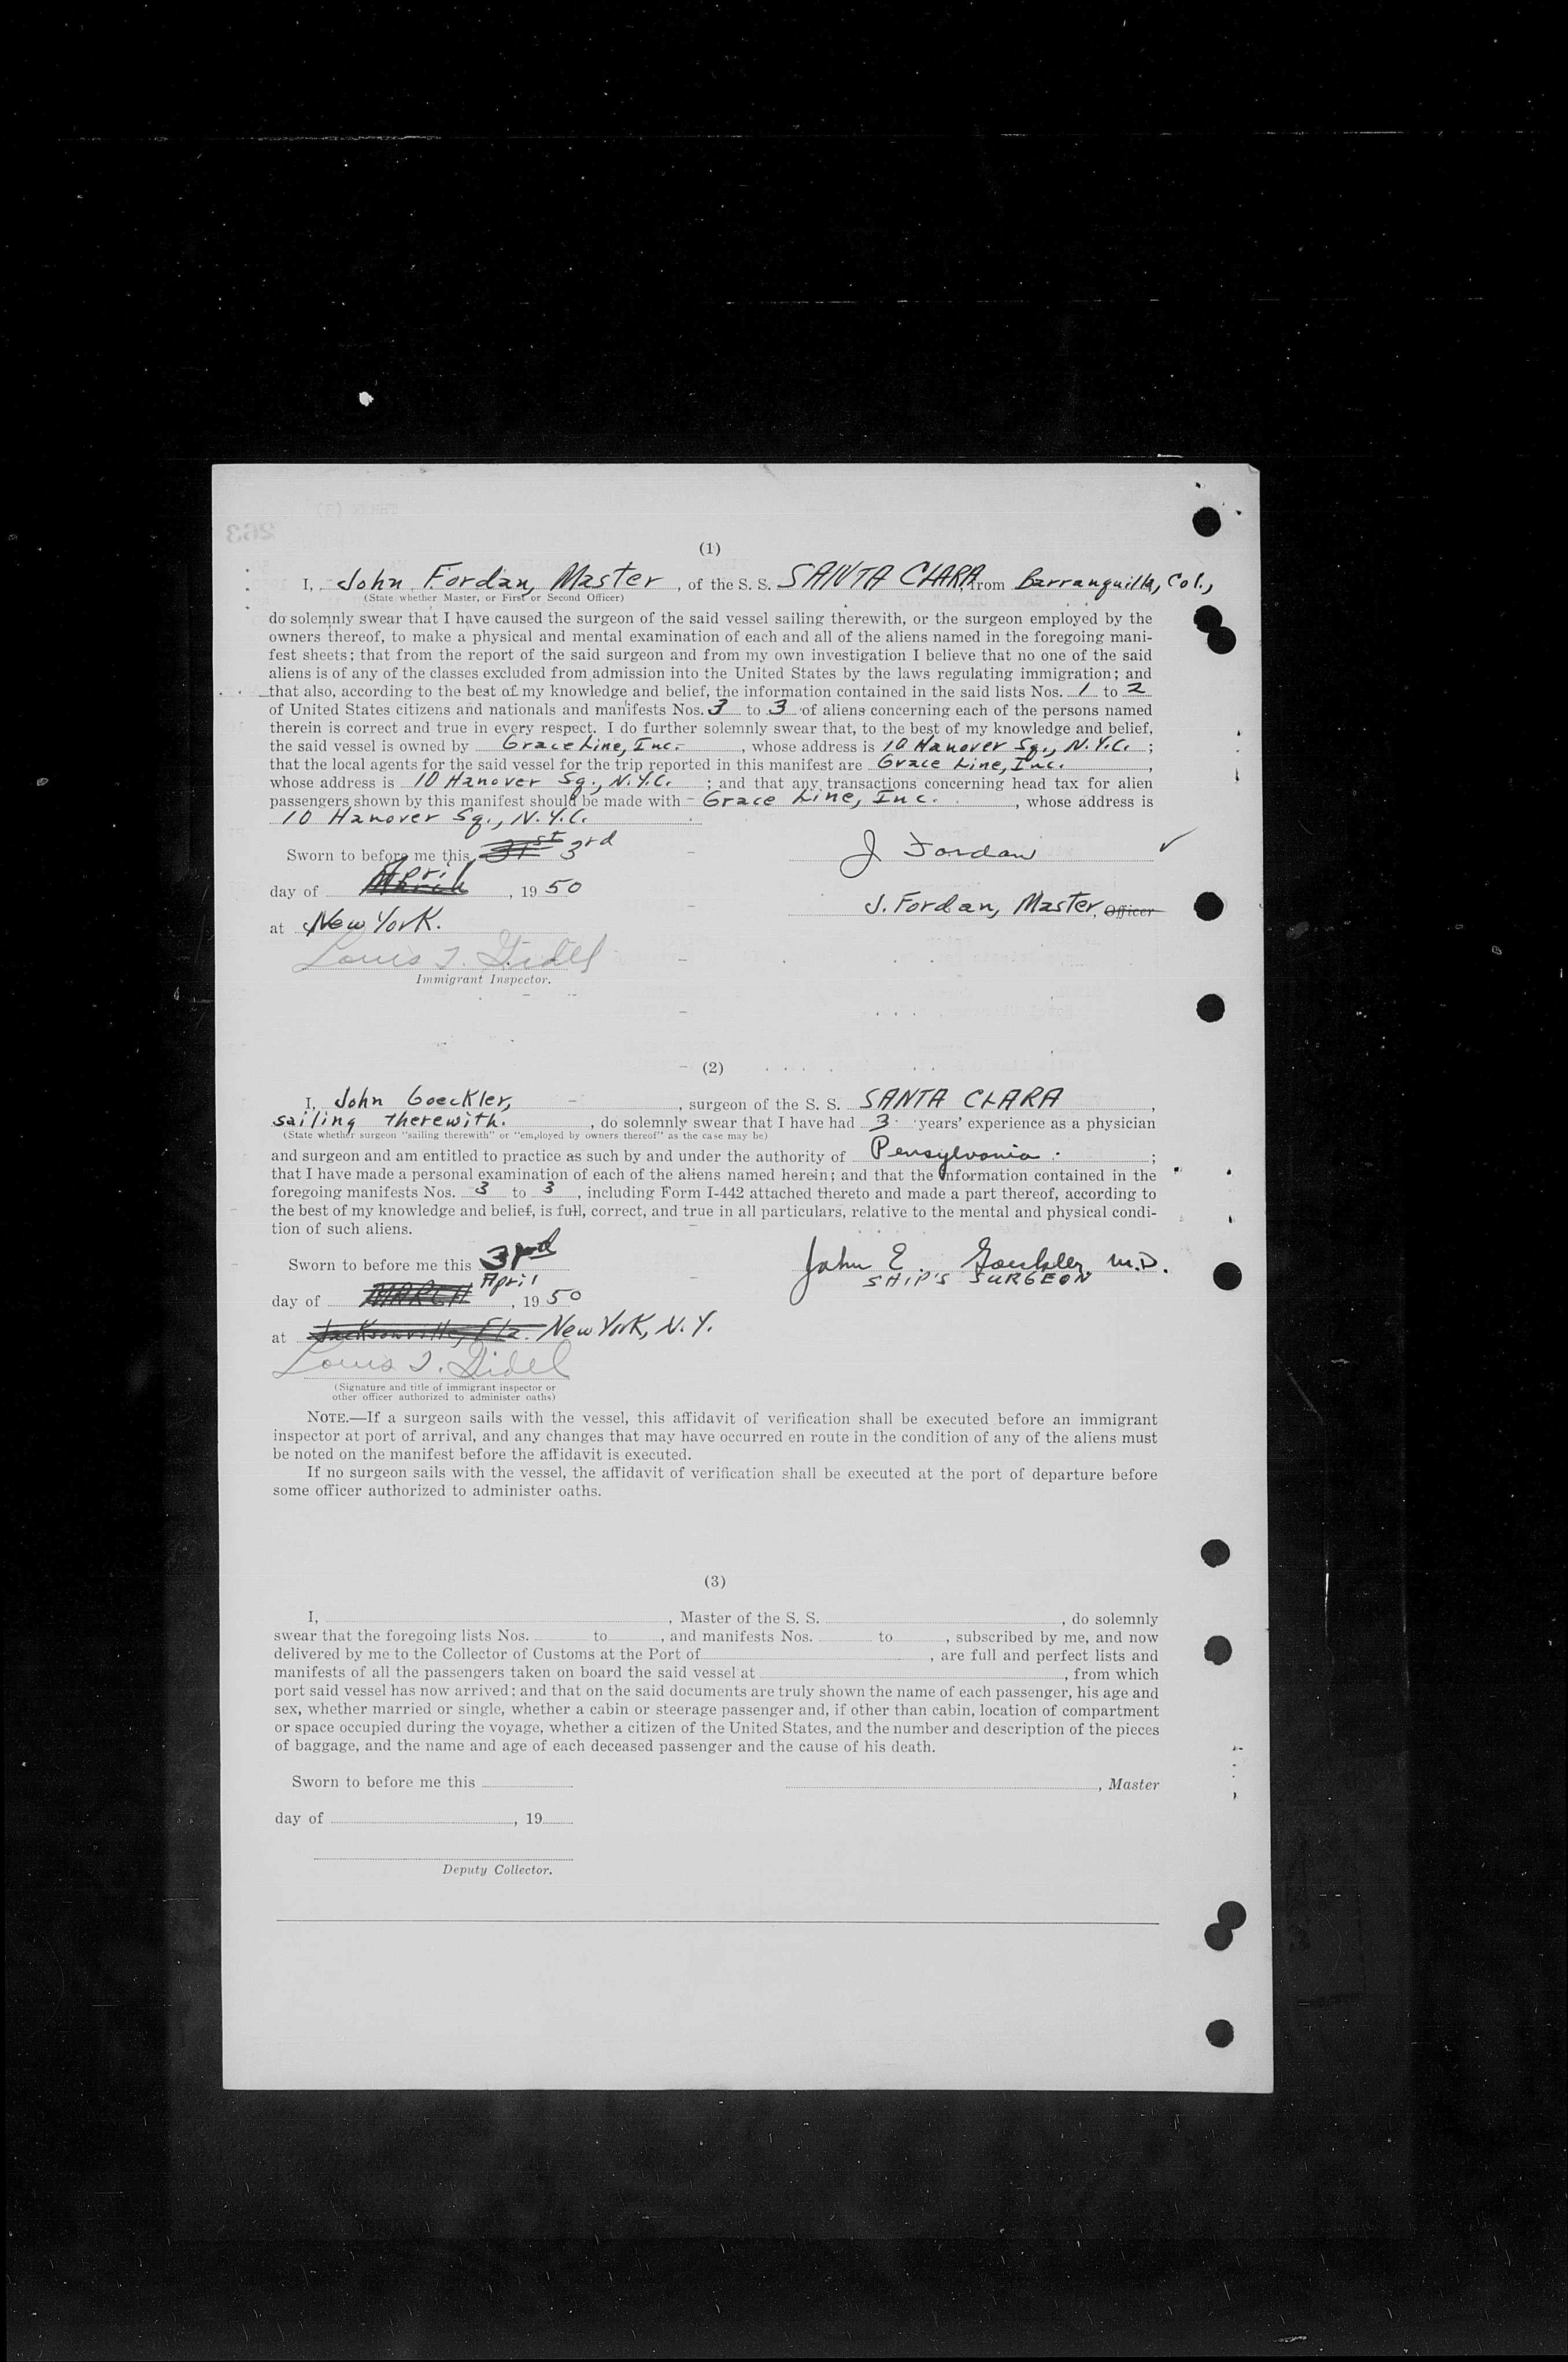 (1)
I, John Fordan, Master, of the S. S. SANTA CLARA, from Barranquilla, Col.,
(State whether Master, or First or Second Officer)
do solemnly swear that I have caused the surgeon of the said vessel sailing therewith, or the surgeon employed by the
owners thereof, to make a physical and mental examination of each and all of the aliens named in the foregoing mani-
fest sheets; that from the report of the said surgeon and from my own investigation I believe that no one of the said
aliens is of any of the classes excluded from admission into the United States by the laws regulating immigration; and
that also, according to the best of my knowledge and belief, the information contained in the said lists Nos. 1 to 2
of United States citizens and nationals and manifests Nos. 3 to 3 of aliens concerning each of the persons named
therein is correct and true in every respect. I do further solemnly swear that, to the best of my knowledge and belief,
the said vessel is owned by Grace Line, Inc., whose address is 10 Hanover Sq., N.Y.C. ;
that the local agents for the said vessel for the trip reported in this manifest are Grace Line, Inc.,
whose address is 10 Hanover Sq., N.Y.C. ; and that any transactions concerning head tax for alien
passengers shown by this manifest should be made with Grace Line, Inc., whose address is
10 Hanover Sq., N.Y.C.
Sworn to before me this 31st 3rd
J Fordan
day of March April, 19 50
J. Fordan, Master, Officer
at New York.
Louis J. Gidel
Immigrant Inspector.
(2)
I, John Goeckler, , surgeon of the S. S. SANTA CLARA ,
sailing therewith. , do solemnly swear that I have had 3 years' experience as a physician
(State whether surgeon "sailing therewith" or "employed by owners thereof" as the case may be)
and surgeon and am entitled to practice as such by and under the authority of Pensylvania. ;
that I have made a personal examination of each of the aliens named herein; and that the information contained in the
foregoing manifests Nos. 3 to 3 , including Form I-442 attached thereto and made a part thereof, according to
the best of my knowledge and belief, is full, correct, and true in all particulars, relative to the mental and physical condi-
tion of such aliens.
Sworn to before me this 3rd
John E. Goeckler, M.D.
SHIP'S SURGEON
day of MARCH April, 19 50
at Jacksonville, Fla. New York, N.Y.
Louis J. Gidel
(Signature and title of immigrant inspector or
other officer authorized to administer oaths)
NOTE.—If a surgeon sails with the vessel, this affidavit of verification shall be executed before an immigrant
inspector at port of arrival, and any changes that may have occurred en route in the condition of any of the aliens must
be noted on the manifest before the affidavit is executed.
If no surgeon sails with the vessel, the affidavit of verification shall be executed at the port of departure before
some officer authorized to administer oaths.
(3)
I, , Master of the S. S. , do solemnly
swear that the foregoing lists Nos. to , and manifests Nos. to , subscribed by me, and now
delivered by me to the Collector of Customs at the Port of , are full and perfect lists and
manifests of all the passengers taken on board the said vessel at , from which
port said vessel has now arrived; and that on the said documents are truly shown the name of each passenger, his age and
sex, whether married or single, whether a cabin or steerage passenger and, if other than cabin, location of compartment
or space occupied during the voyage, whether a citizen of the United States, and the number and description of the pieces
of baggage, and the name and age of each deceased passenger and the cause of his death.
Sworn to before me this
, Master
day of , 19
Deputy Collector.